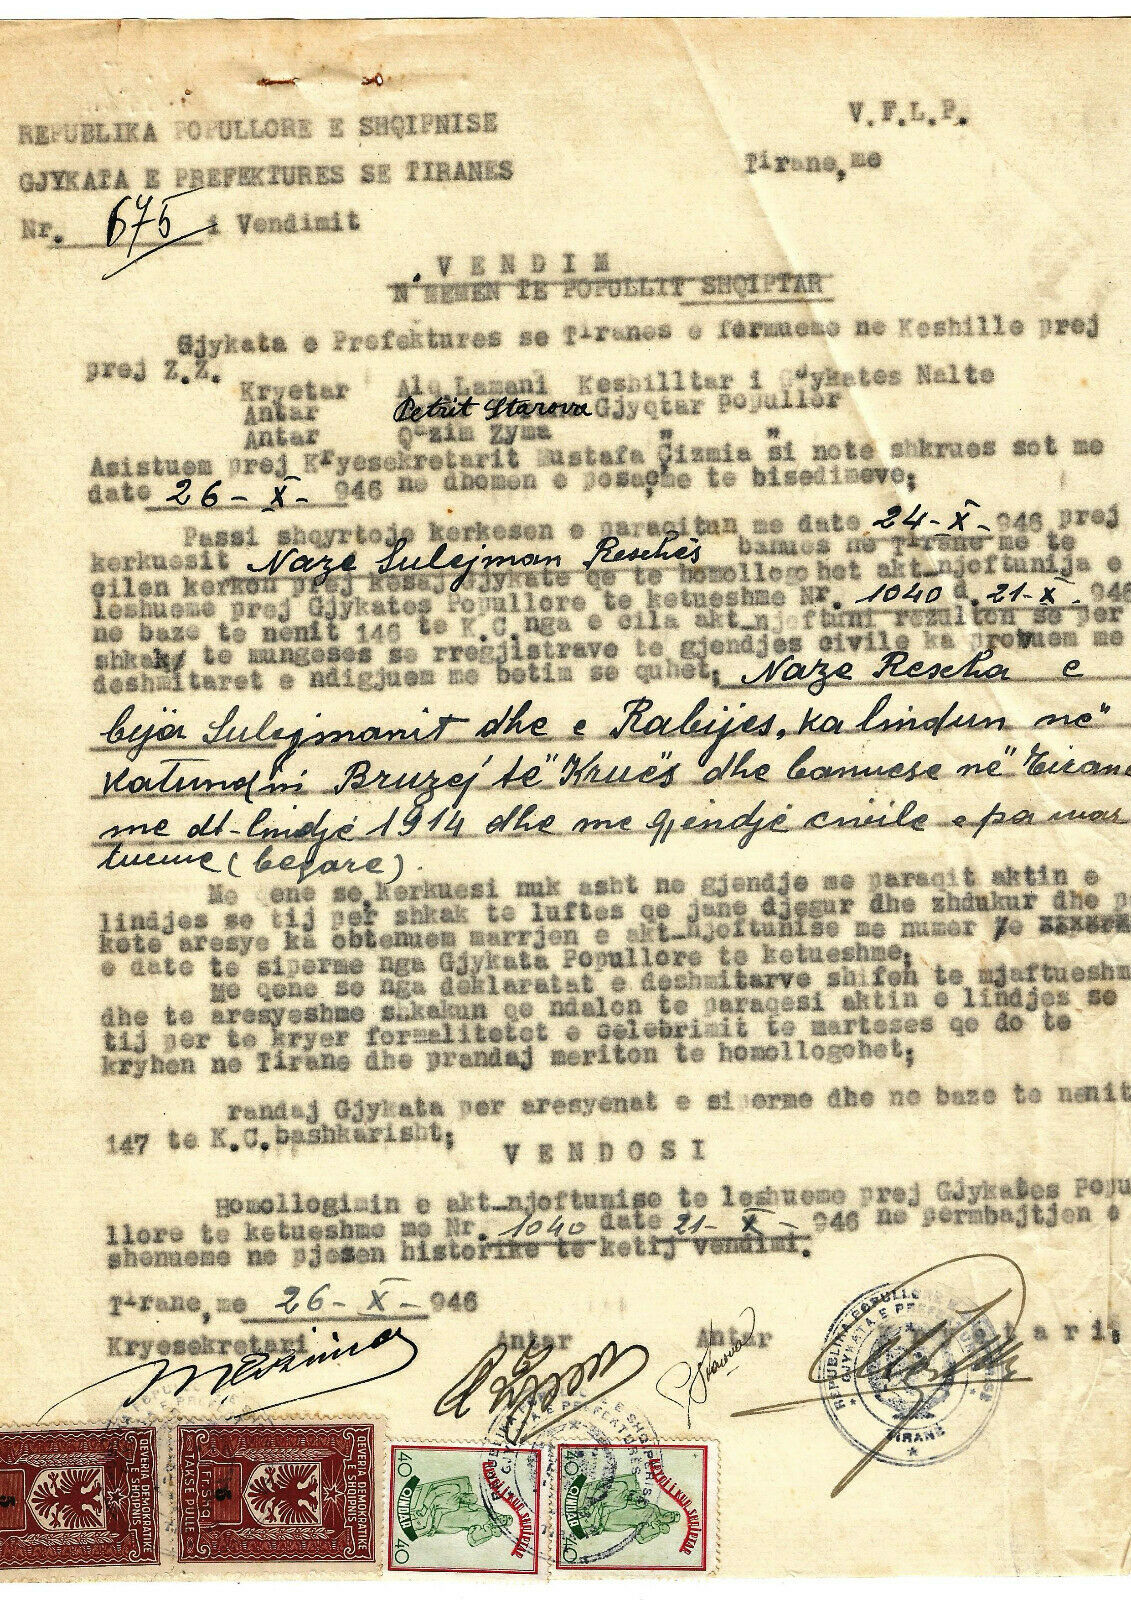 V.F.L.P.
REPUBLIKA POPULLORE E SHQIPNISE
Tirane,me
GJYKATA E PREFEKTURES SE TIRANES
Nr. 675 i Vendimit
V E N D I M
N'MEMEN TE POPULLIT SHQIPTAR
Gjykata e Prefektures se Tiranes e formueme ne Keshille prej
prej Z.Z.
Kryetar Alo Lamani Keshilltar i Gjykates Nalte
Antar Petrit Starova Gjyqtar popullor
Antar Qazim Zyma " "
Asistuem prej Kryesekretarit Mustafa Çizmia si note shkrues sot me
date 26-X-946 ne dhomen e posaçme te bisedimeve;
Passi shqyrtoje kerkesen e paraqitun me date 24-X-946 prej
kerkuesit Naze Sulejman Reschës banues ne Tirane me te
cilen kerkon prej kesaj Gjykate qe te homollogohet akt_njeftunija e
leshueme prej Gjykates Popullore te ketueshme Nr. 1040 d. 21-X-946
ne baze te nenit 146 te K.C. nga e cila akt_njeftuni rezulton se per
shkak te mungeses se rregjistrave te gjendjes civile ka provuem me
deshmitaret e ndigjuem me betim se quhet, Naze Rescha e
bija Sulejmanit dhe e Rabijes, ka lindun në
katundni Bruzej të Kruës dhe banuese në Tirane
me dt-lindjé 1914 dhe me gjendjé civile e pa mar
tueme (begare).
Me qene se kerkuesi nuk asht ne gjendje me paraqit aktin e
lindjes se tij per shkak te luftes qe jane djegur dhe zhdukur dhe p
kete aresye ka obtenuem marrjen e akt_njoftunise me numer e
e date te siperme nga Gjykata Popullore te ketueshme;
Me qene se nga deklaratat e deshmitarve shifen te mjaftueshm
dhe te aresyeshme shkakun qe ndalon te paraqesi aktin e lindjes se
tij per te kryer formalitetet e celebrimit te marteses qe do te
kryhen ne Tirane dhe prandaj meriton te homollogohet;
randaj Gjykata per aresyenat e siperme dhe ne baze te nenit
147 te K.C. bashkarisht;
V E N D O S I
Homollogimin e akt_njeftunise te leshueme prej Gjykates Popu
llore te ketueshme me Nr. 1040 date 21-X-946 ne permbajtjen e
shenueme ne pjesen historike te ketij vendimi.
Tirane,me 26-X-946
Kryesekretari Antar Antar K r y e t a r i
REPUBLIKA POPULLORE E SHQIPNISE
GJYKATA E PREFEKTURES
TIRANË
QEVERIA DEMOKRATIKE E SHQIPNIS
5
1 Fr. Shqi.
TAKSE PULLE
5
QEVERIA DEMOKRATIKE E SHQIPNIS
5
1 Fr. Shqi.
TAKSE PULLE
40 QINDAR 40
40 QINDAR 40